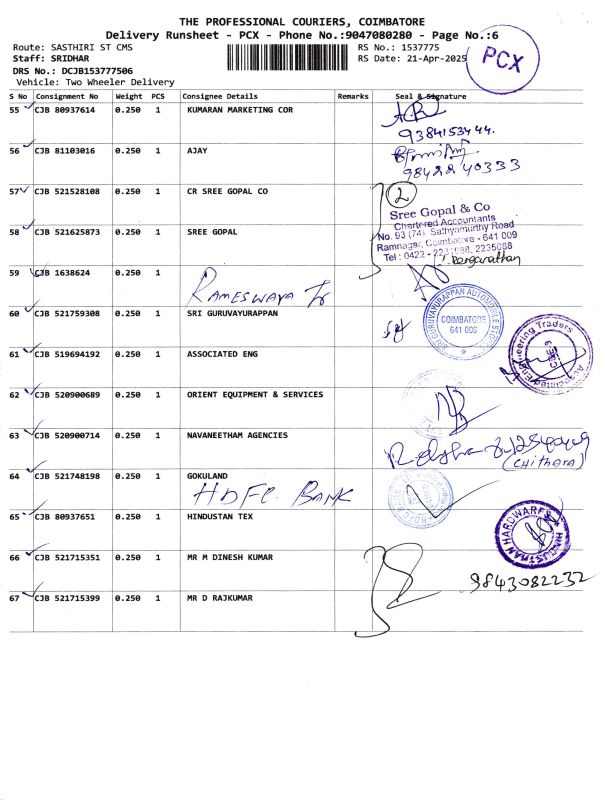 THE PROFESSIONAL COURIERS, COIMBATORE
Delivery Runsheet - PCX - Phone No.:9047080280 - Page No.:6
Route: SASTHIRI ST CMS
RS No.: 1537775
Staff: SRIDHAR
RS Date: 21-Apr-2025
PCX
DRS No.: DCJB153777506
Vehicle: Two Wheeler Delivery
S No Consignment No Weight PCS Consignee Details Remarks Seal & Signature
55 CJB 80937614 0.250 1 KUMARAN MARKETING COR
9384153444.
56 CJB 81103016 0.250 1 AJAY
9842240333
57 CJB 521528108 0.250 1 CR SREE GOPAL CO
2
Sree Gopal & Co
Chartered Accountants
No. 93 (74), Sathyamurthy Road
Ramnagar, Coimbatore - 641 009
Tel : 0422 - 2231988, 2235088
58 CJB 521625873 0.250 1 SREE GOPAL
59 CJB 1638624 0.250 1
60 CJB 521759308 0.250 1 SRI GURUVAYURAPPAN
SRI GURUVAYURAPPAN AUTOMOBILE STORES
COIMBATORE
641 009
61 CJB 519694192 0.250 1 ASSOCIATED ENG
Associated Engineering Traders
62 CJB 520900689 0.250 1 ORIENT EQUIPMENT & SERVICES
63 CJB 520900714 0.250 1 NAVANEETHAM AGENCIES
(Chithara)
64 CJB 521748198 0.250 1 GOKULAND
HDFC BANK
65 CJB 80937651 0.250 1 HINDUSTAN TEX
HINDUSTHAN HARDWARES
66 CJB 521715351 0.250 1 MR M DINESH KUMAR
9843082232
67 CJB 521715399 0.250 1 MR D RAJKUMAR